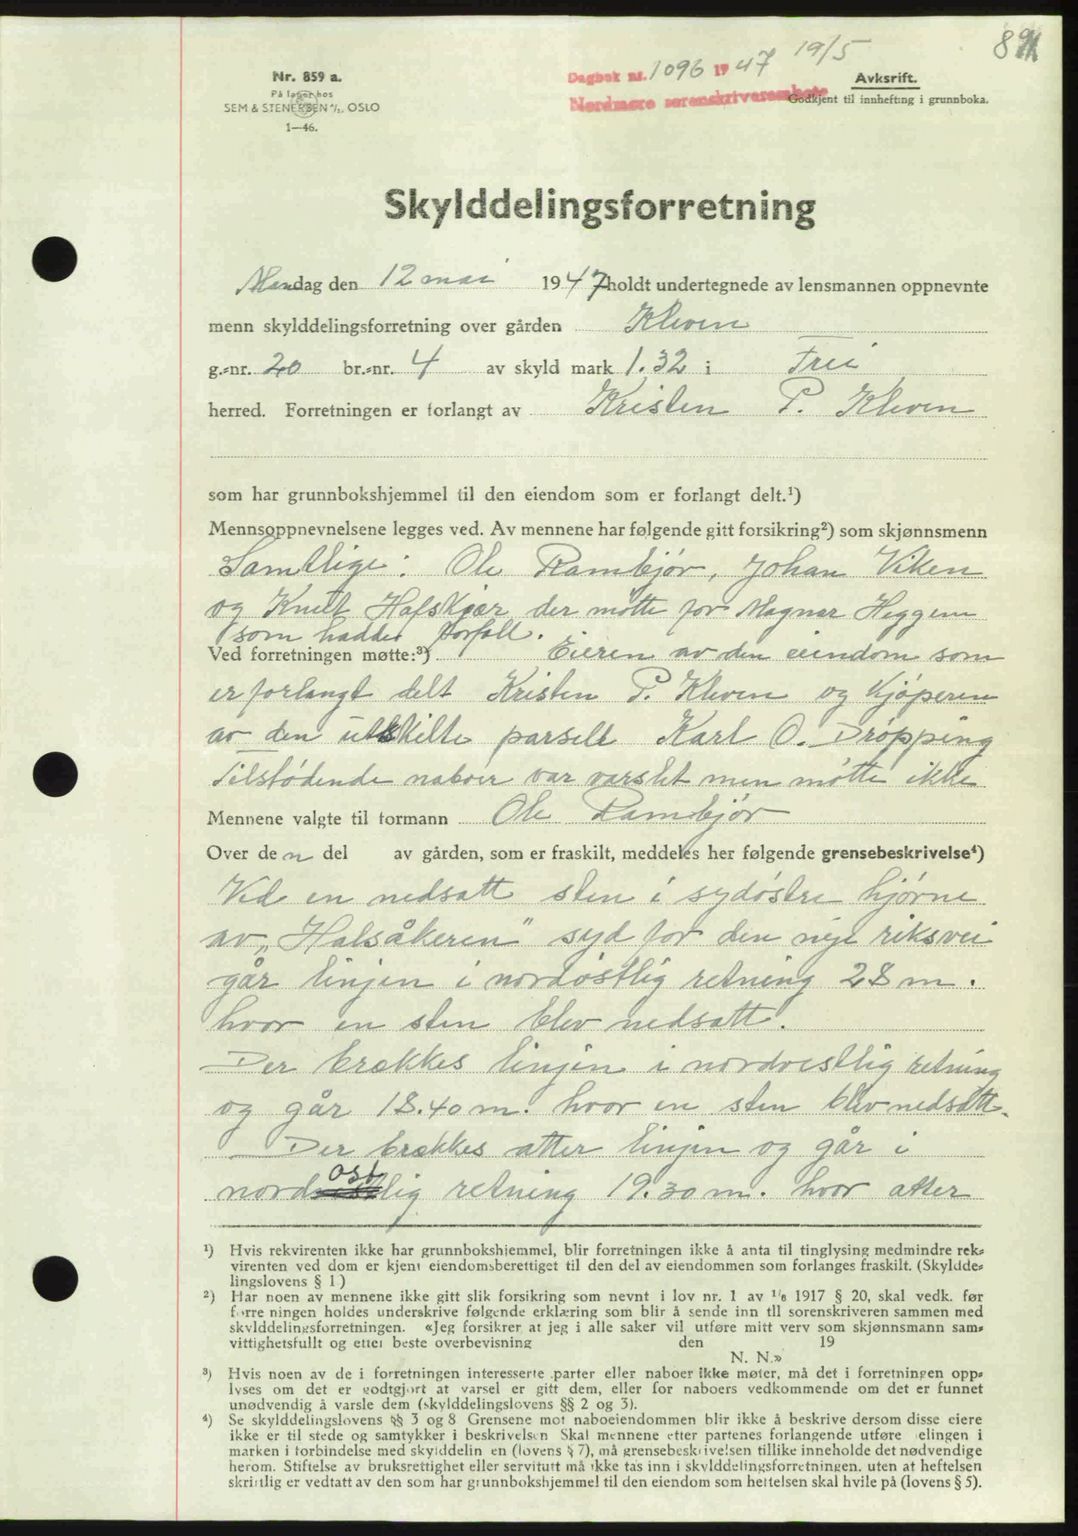 891
19/5
Dagbok nr. 1096 1947
Nordmøre sorenskriverembete
Nr. 859 a.
På lager hos
SEM & STENERSEN A/S, OSLO
1—46.
Avskrift.
Godkjent til innhefting i grunnboka.
Skylddelingsforretning
Mandag den 12 mai 1947 holdt undertegnede av lensmannen oppnevnte
menn skylddelingsforretning over gården Kleven
g.-nr. 20 br.-nr. 4 av skyld mark 1.32 i Frei
herred. Forretningen er forlangt av Kristen P. Kleven
som har grunnbokshjemmel til den eiendom som er forlangt delt.¹)
Mennsoppnevnelsene legges ved. Av mennene har følgende gitt forsikring²) som skjønnsmenn
Samtlige: Ole Rambjør, Johan Viken
og Knut Hafskjær der møtte for Magnar Heggem
som hadde forfall.
Ved forretningen møtte:³) Eieren av den eiendom som
er forlangt delt Kristen P. Kleven og kjøperen
av den utskilte parsell Karl O. Drøpping
Tilstødende naboer var varslet men møtte ikke
Mennene valgte til formann Ole Rambjør
Over den del av gården, som er fraskilt, meddeles her følgende grensebeskrivelse⁴)
Ved en nedsatt sten i sydøstre hjørne
av „Halsåkeren" syd for den nye riksvei
går linjen i nordøstlig retning 28 m.
hvor en sten blev nedsatt.
Der brækkes linjen i nordvestlig retning
og går 18.40 m. hvor en sten blev nedsatt.
Der brækkes atter linjen og går i
nordostlig retning 19.30 m. hvor atter
¹) Hvis rekvirenten ikke har grunnbokshjemmel, blir forretningen ikke å anta til tinglysing medmindre rek-
virenten ved dom er kjent eiendomsberettiget til den del av eiendommen som forlanges fraskilt. (Skyldde-
lingslovens § 1)
²) Har noen av mennene ikke gitt slik forsikring som nevnt i lov nr. 1 av 1/6 1917 § 20, skal vedk. før
forretningen holdes underskrive følgende erklæring som blir å sende inn til sorenskriveren sammen med
skylddelingsforretningen. «Jeg forsikrer at jeg i alle saker vil utføre mitt verv som skjønnsmann sam-
vittighetsfullt og etter beste overbevisning den 19
N. N.»
³) Hvis noen av de i forretningen interesserte parter eller naboer ikke møter, må det i forretningen opp-
lyses om det er godtgjort at varsel er gitt dem, eller for naboers vedkommende om det er funnet
unødvendig å varsle dem (skylddelingslovens §§ 2 og 3).
⁴) Se skylddelingslovens §§ 3 og 8 Grensene mot naboeiendommen blir ikke å beskrive dersom disse eiere
ikke er til stede og samtykker i beskrivelsen Skal mennene etter partenes forlangende utføre delingen i
marken i forbindelse med skylddelingen (lovens § 7), må grensebeskrivelsen tillike inneholde det nødvendige
herom. Stiftelse av bruksrettighet eller servitutt må ikke tas inn i skylddelingsforretningen, uten at heftelsen
skriftlig er vedtatt av den som har grunnbokshjemmel til den eiendom som heftelsen skal hvile på (lovens § 5).